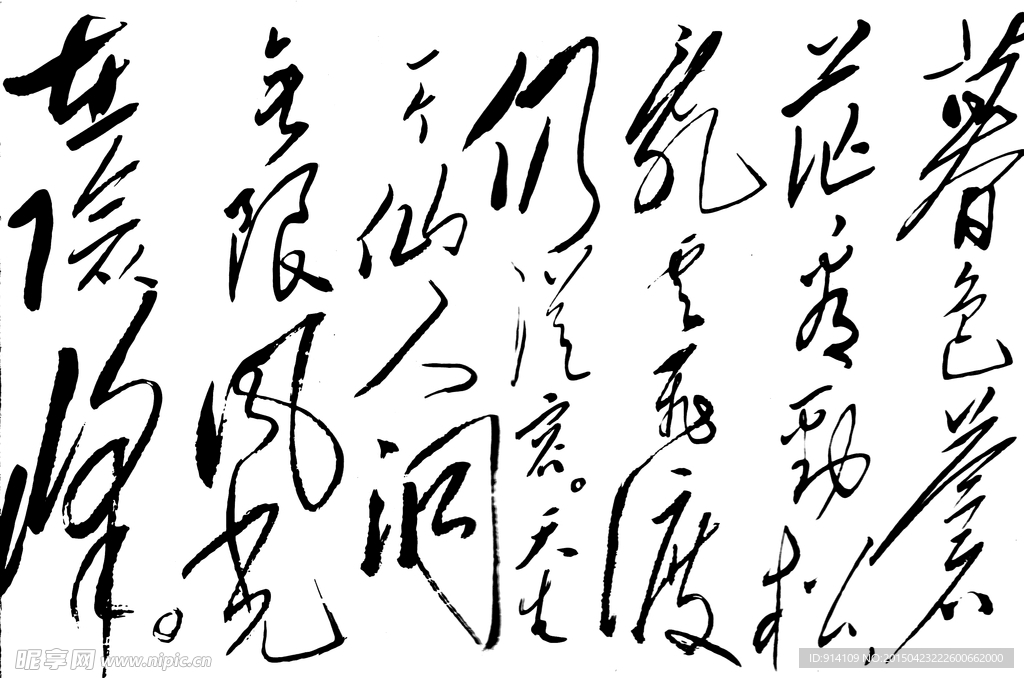 暮色蒼
茫看勁松
乱云飛渡
仍從容。天生
一个仙人洞
無限風光
在險峰。
昵享网 www.nipic.cn
ID:914109 NO:20150423222600662000